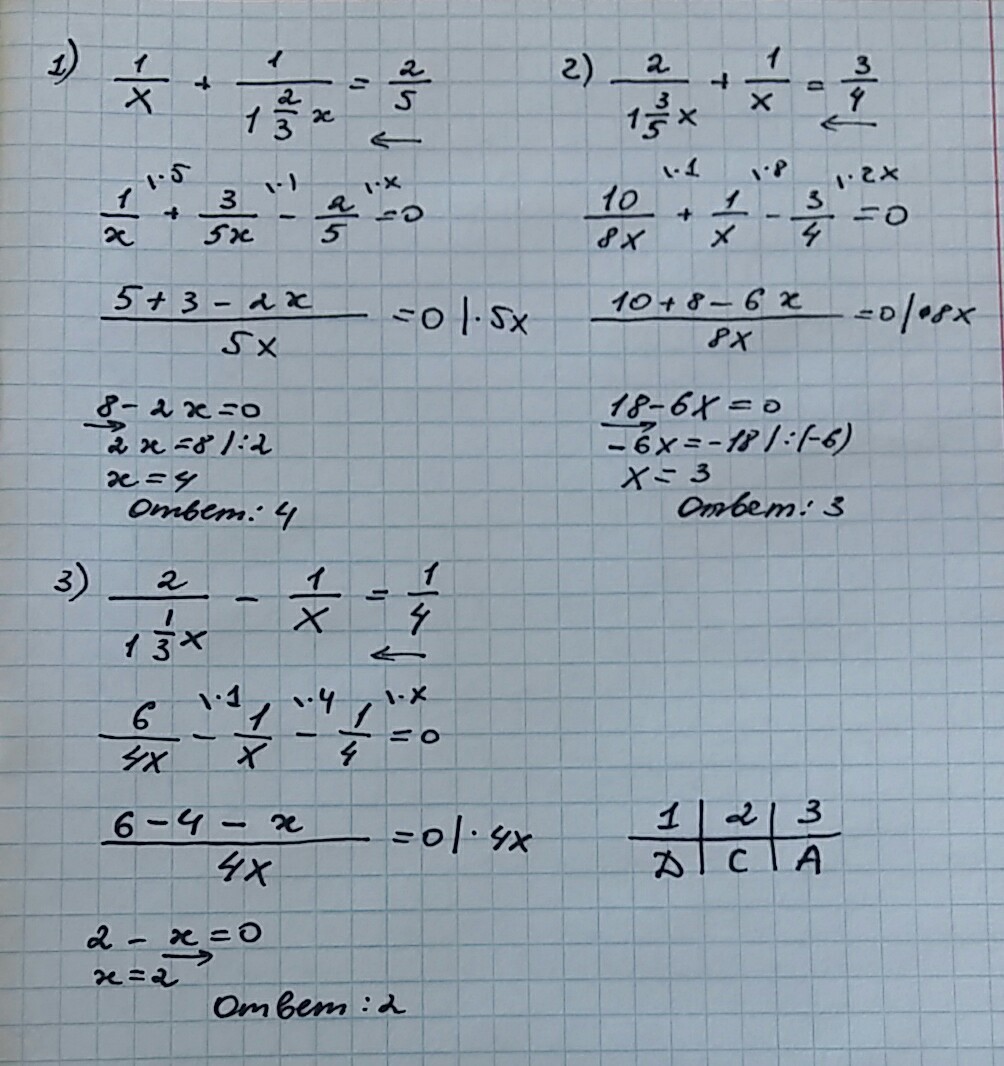 1) 1/x + 1/(1 2/3 x) = 2/5 ←
1/x \·5 + 3/5x \·1 - 2/5 \·x = 0
(5 + 3 - 2x)/5x = 0 |·5x
8 - 2x = 0 →
2x = 8 |:2
x = 4
Ответ: 4
2) 2/(1 3/5 x) + 1/x = 3/4 ←
10/8x \·1 + 1/x \·8 - 3/4 \·2x = 0
(10 + 8 - 6x)/8x = 0 |·8x
18 - 6x = 0 →
-6x = -18 |:(-6)
x = 3
Ответ: 3
3) 2/(1 1/3 x) - 1/x = 1/4 ←
6/4x \·1 - 1/x \·4 - 1/4 \·x = 0
(6 - 4 - x)/4x = 0 |·4x
2 - x = 0 →
x = 2
Ответ: 2
1 | 2 | 3
D | C | A